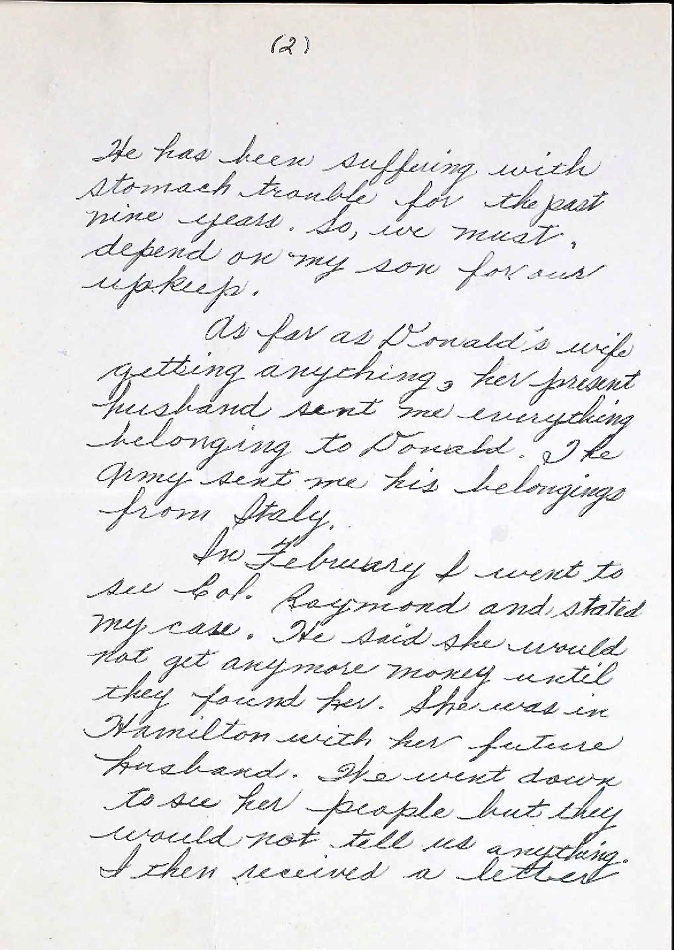 (2)
He has been suffering with
stomach trouble for the past
nine years. So, we must,
depend on my son for our
upkeep.
As far as Donald's wife
getting anything, her present
husband sent me everything
belonging to Donald. The
Army sent me his belongings
from Italy.
In February I went to
see Col. Raymond and stated
my case. He said she would
not get anymore money until
they found her. She was in
Hamilton with her future
husband. We went down
to see her people but they
would not tell us anything.
I then received a letter